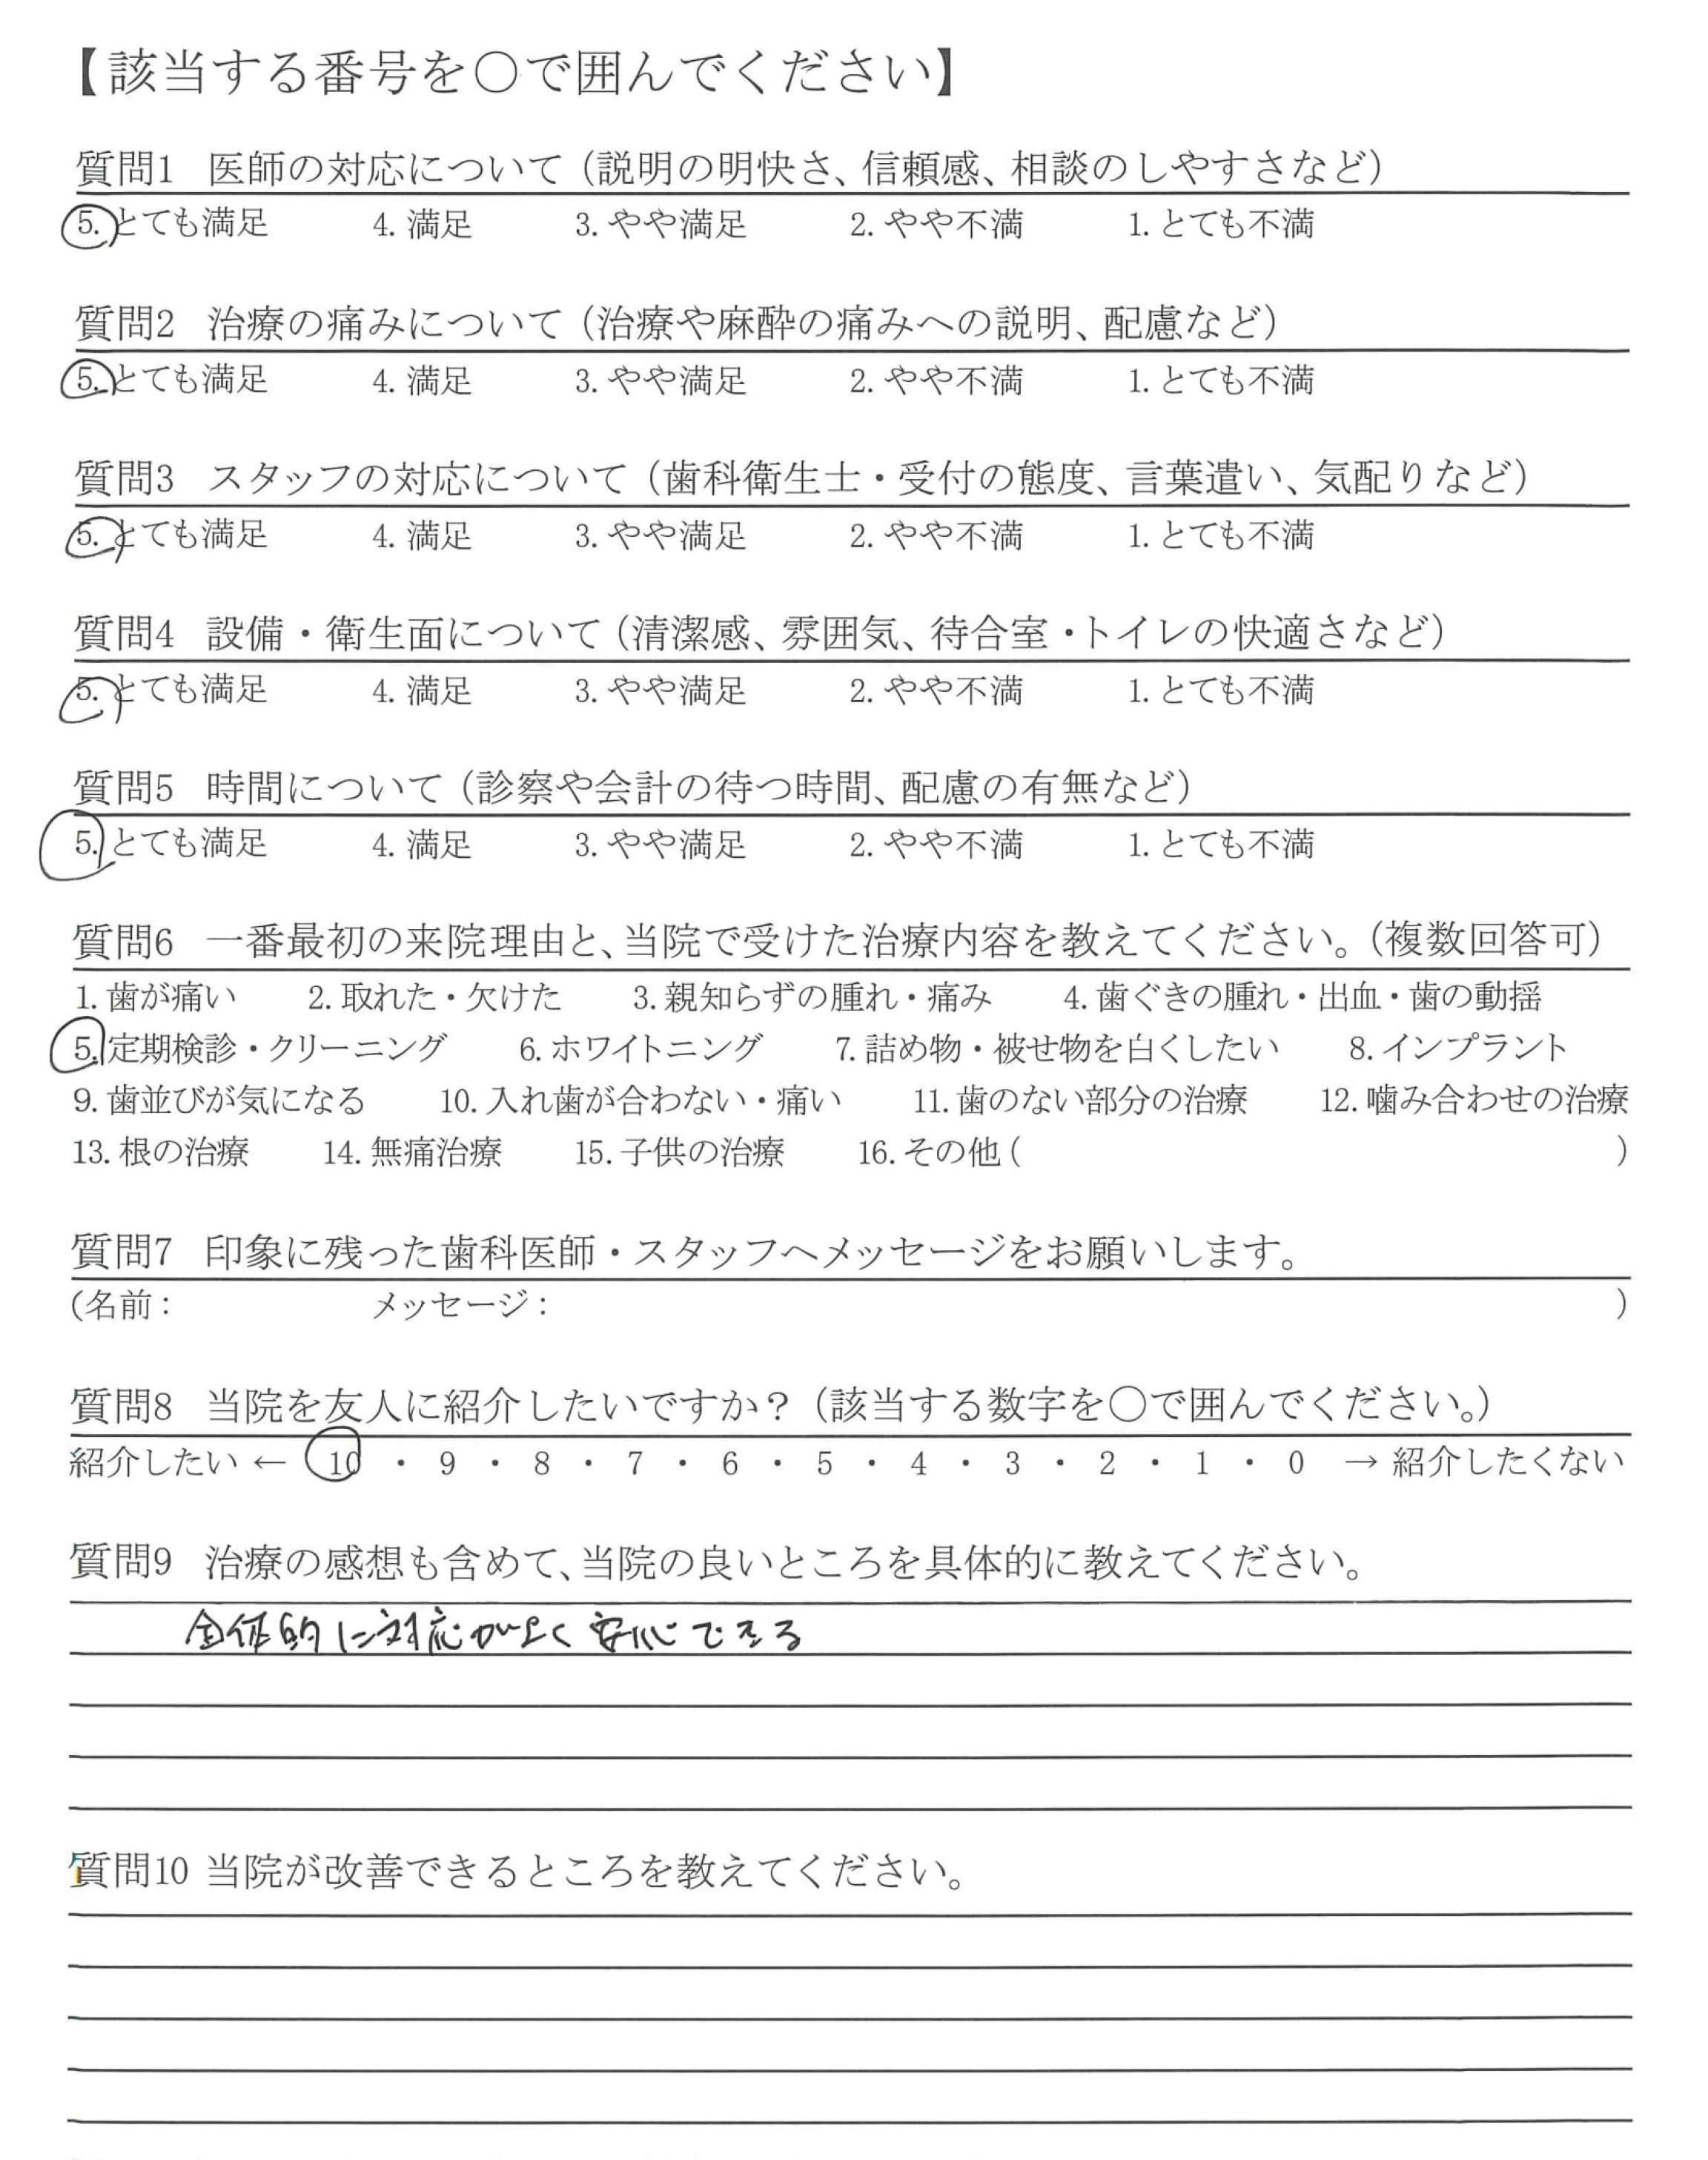 【該当する番号を〇で囲んでください】
質問1 医師の対応について（説明の明快さ、信頼感、相談のしやすさなど）
5. とても満足 4. 満足 3. やや満足 2. やや不満 1. とても不満
質問2 治療の痛みについて（治療や麻酔の痛みへの説明、配慮など）
5. とても満足 4. 満足 3. やや満足 2. やや不満 1. とても不満
質問3 スタッフの対応について（歯科衛生士・受付の態度、言葉遣い、気配りなど）
5. とても満足 4. 満足 3. やや満足 2. やや不満 1. とても不満
質問4 設備・衛生面について（清潔感、雰囲気、待合室・トイレの快適さなど）
5. とても満足 4. 満足 3. やや満足 2. やや不満 1. とても不満
質問5 時間について（診察や会計の待つ時間、配慮の有無など）
5. とても満足 4. 満足 3. やや満足 2. やや不満 1. とても不満
質問6 一番最初の来院理由と、当院で受けた治療内容を教えてください。（複数回答可）
1. 歯が痛い 2. 取れた・欠けた 3. 親知らずの腫れ・痛み 4. 歯ぐきの腫れ・出血・歯の動揺
5. 定期検診・クリーニング 6. ホワイトニング 7. 詰め物・被せ物を白くしたい 8. インプラント
9. 歯並びが気になる 10. 入れ歯が合わない・痛い 11. 歯のない部分の治療 12. 噛み合わせの治療
13. 根の治療 14. 無痛治療 15. 子供の治療 16. その他（ ）
質問7 印象に残った歯科医師・スタッフへメッセージをお願いします。
（名前： メッセージ： ）
質問8 当院を友人に紹介したいですか？（該当する数字を〇で囲んでください。）
紹介したい ← 10 ・ 9 ・ 8 ・ 7 ・ 6 ・ 5 ・ 4 ・ 3 ・ 2 ・ 1 ・ 0 → 紹介したくない
質問9 治療の感想も含めて、当院の良いところを具体的に教えてください。
全体的に対応がよく安心できる
質問10 当院が改善できるところを教えてください。